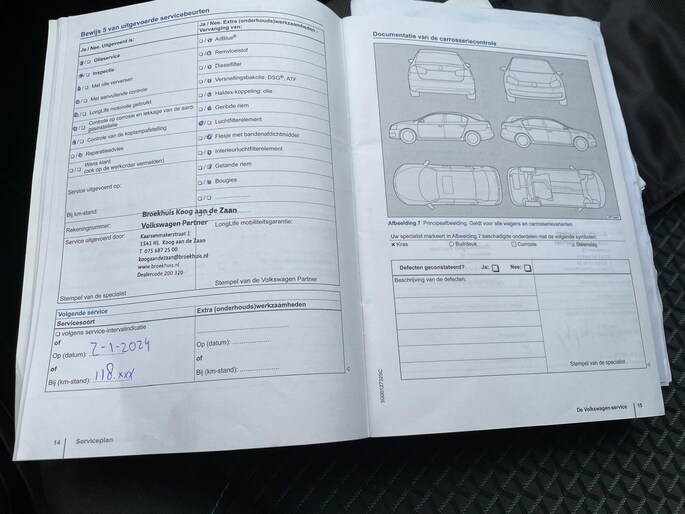 Bewijs 5 van uitgevoerde servicebeurten
Ja / Nee. Uitgevoerd is:
Olieservice
Inspectie
Met olie verversen
Met aanvullende controle
LongLife motorolie gebruikt
Controle op corrosie en lekkage van de aardgasinstallatie
Controle van de koplampafstelling
Reparatieadvies
Wens klant
(ook op de werkorder vermelden)
Service uitgevoerd op:
Bij km-stand:
Rekeningnummer:
Service uitgevoerd door:
Stempel van de specialist
Ja / Nee. Extra (onderhouds)werkzaamheden
Vervanging van:
AdBlue®
Remvloeistof
Dieselfilter
Versnellingsbakolie: DSG®, ATF
Haldex-koppeling: olie
Geribde riem
Luchtfilterelement
Flesje met bandenafdichtmiddel
Interieurluchtfilterelement
Getande riem
Bougies
LongLife mobiliteitsgarantie:
Stempel van de Volkswagen Partner
Broekhuis Koog aan de Zaan
Volkswagen Partner
1541 HL Koog aan de Zaan
T 075 687 25 00
koogaandezaan@broekhuis.nl
www.broekhuis.nl
Dealercode 200 320
Volgende service
Servicesoort
volgens service-intervalindicatie
of
Op (datum): 2-1-2024
of
Bij (km-stand): 118.xxx
Extra (onderhouds)werkzaamheden
Op (datum):
of
Bij (km-stand):
14 Serviceplan
Documentatie van de carrosseriecontrole
Afbeelding 7 Principeafbeelding. Geldt voor alle wagens en carrosserievarianten.
Uw specialist markeert in Afbeelding 7 beschadigde onderdelen met de volgende symbolen:
x Kras
Buil/deuk
Corrosie
Steenslag
Defecten geconstateerd? Ja: Nee:
Beschrijving van de defecten:
Stempel van de specialist
De Volkswagen-service 15